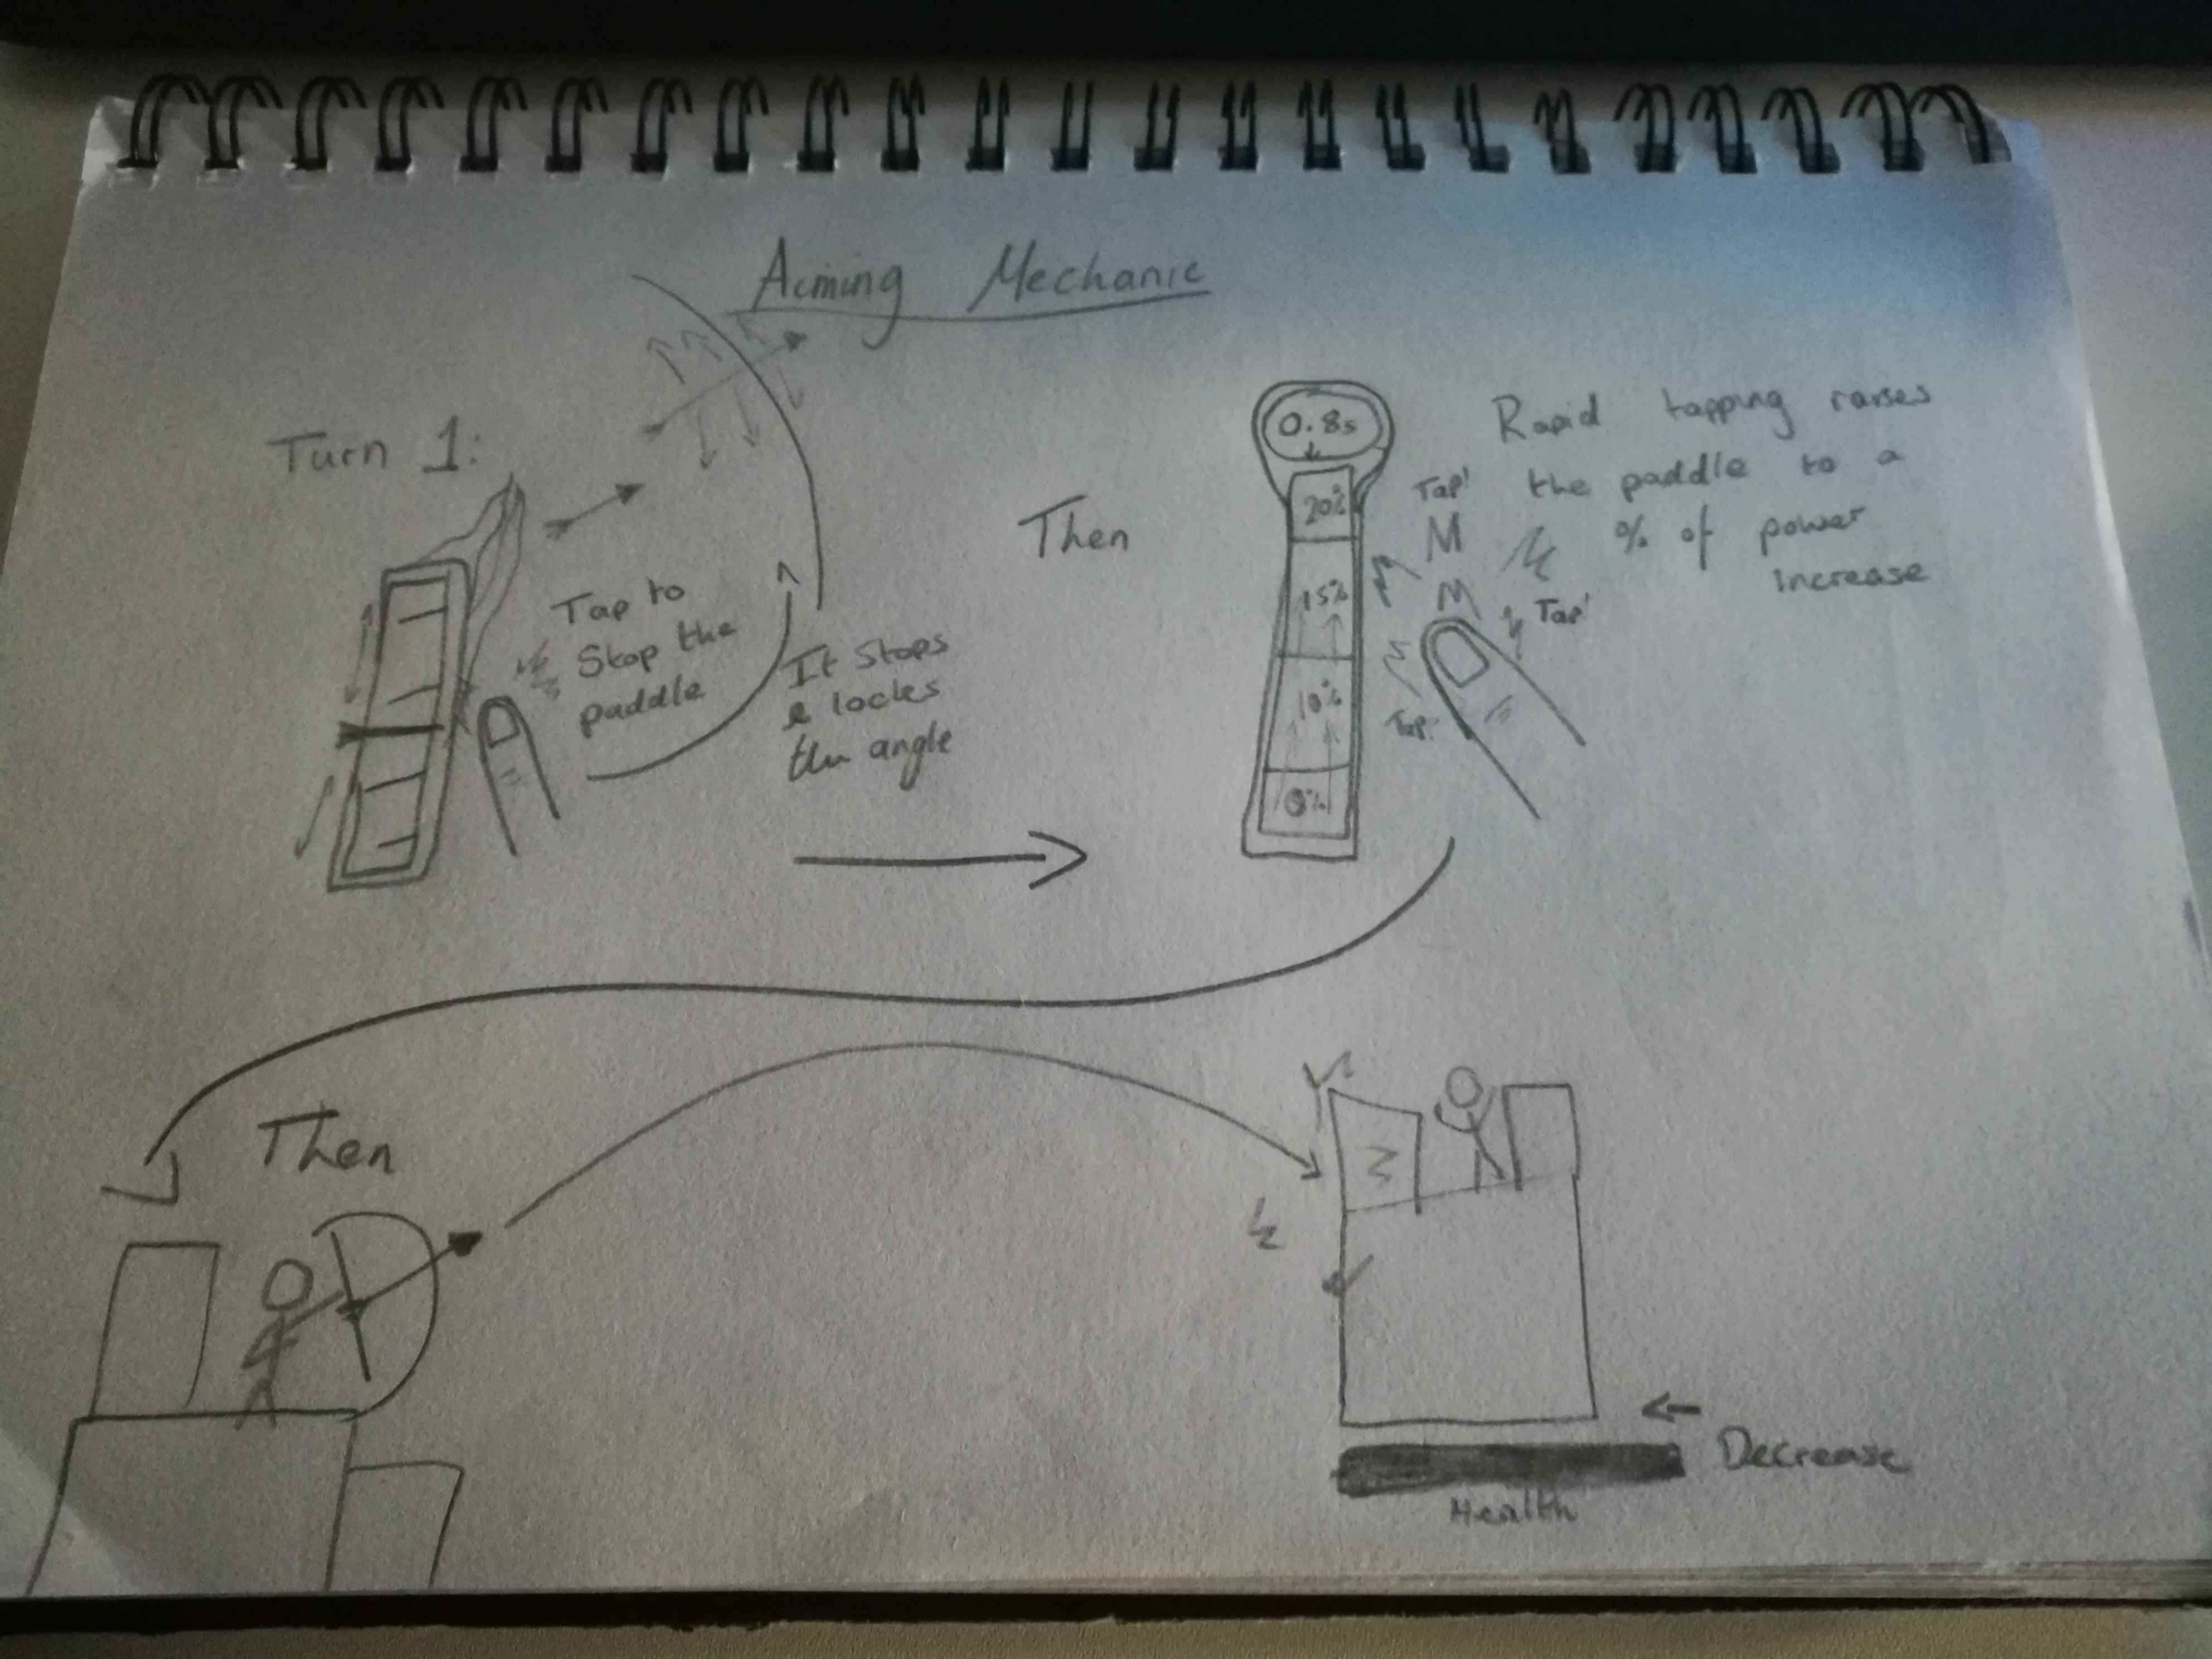 Aiming Mechanic
Turn 1:
Tap to
Stop the
paddle
It Stops
& locks
the angle
Then
0.8s
20%
15%
10%
0%
Tap!
Tap!
Tap!
Rapid tapping raises
the paddle to a
% of power
increase
Then
Decrease
Health